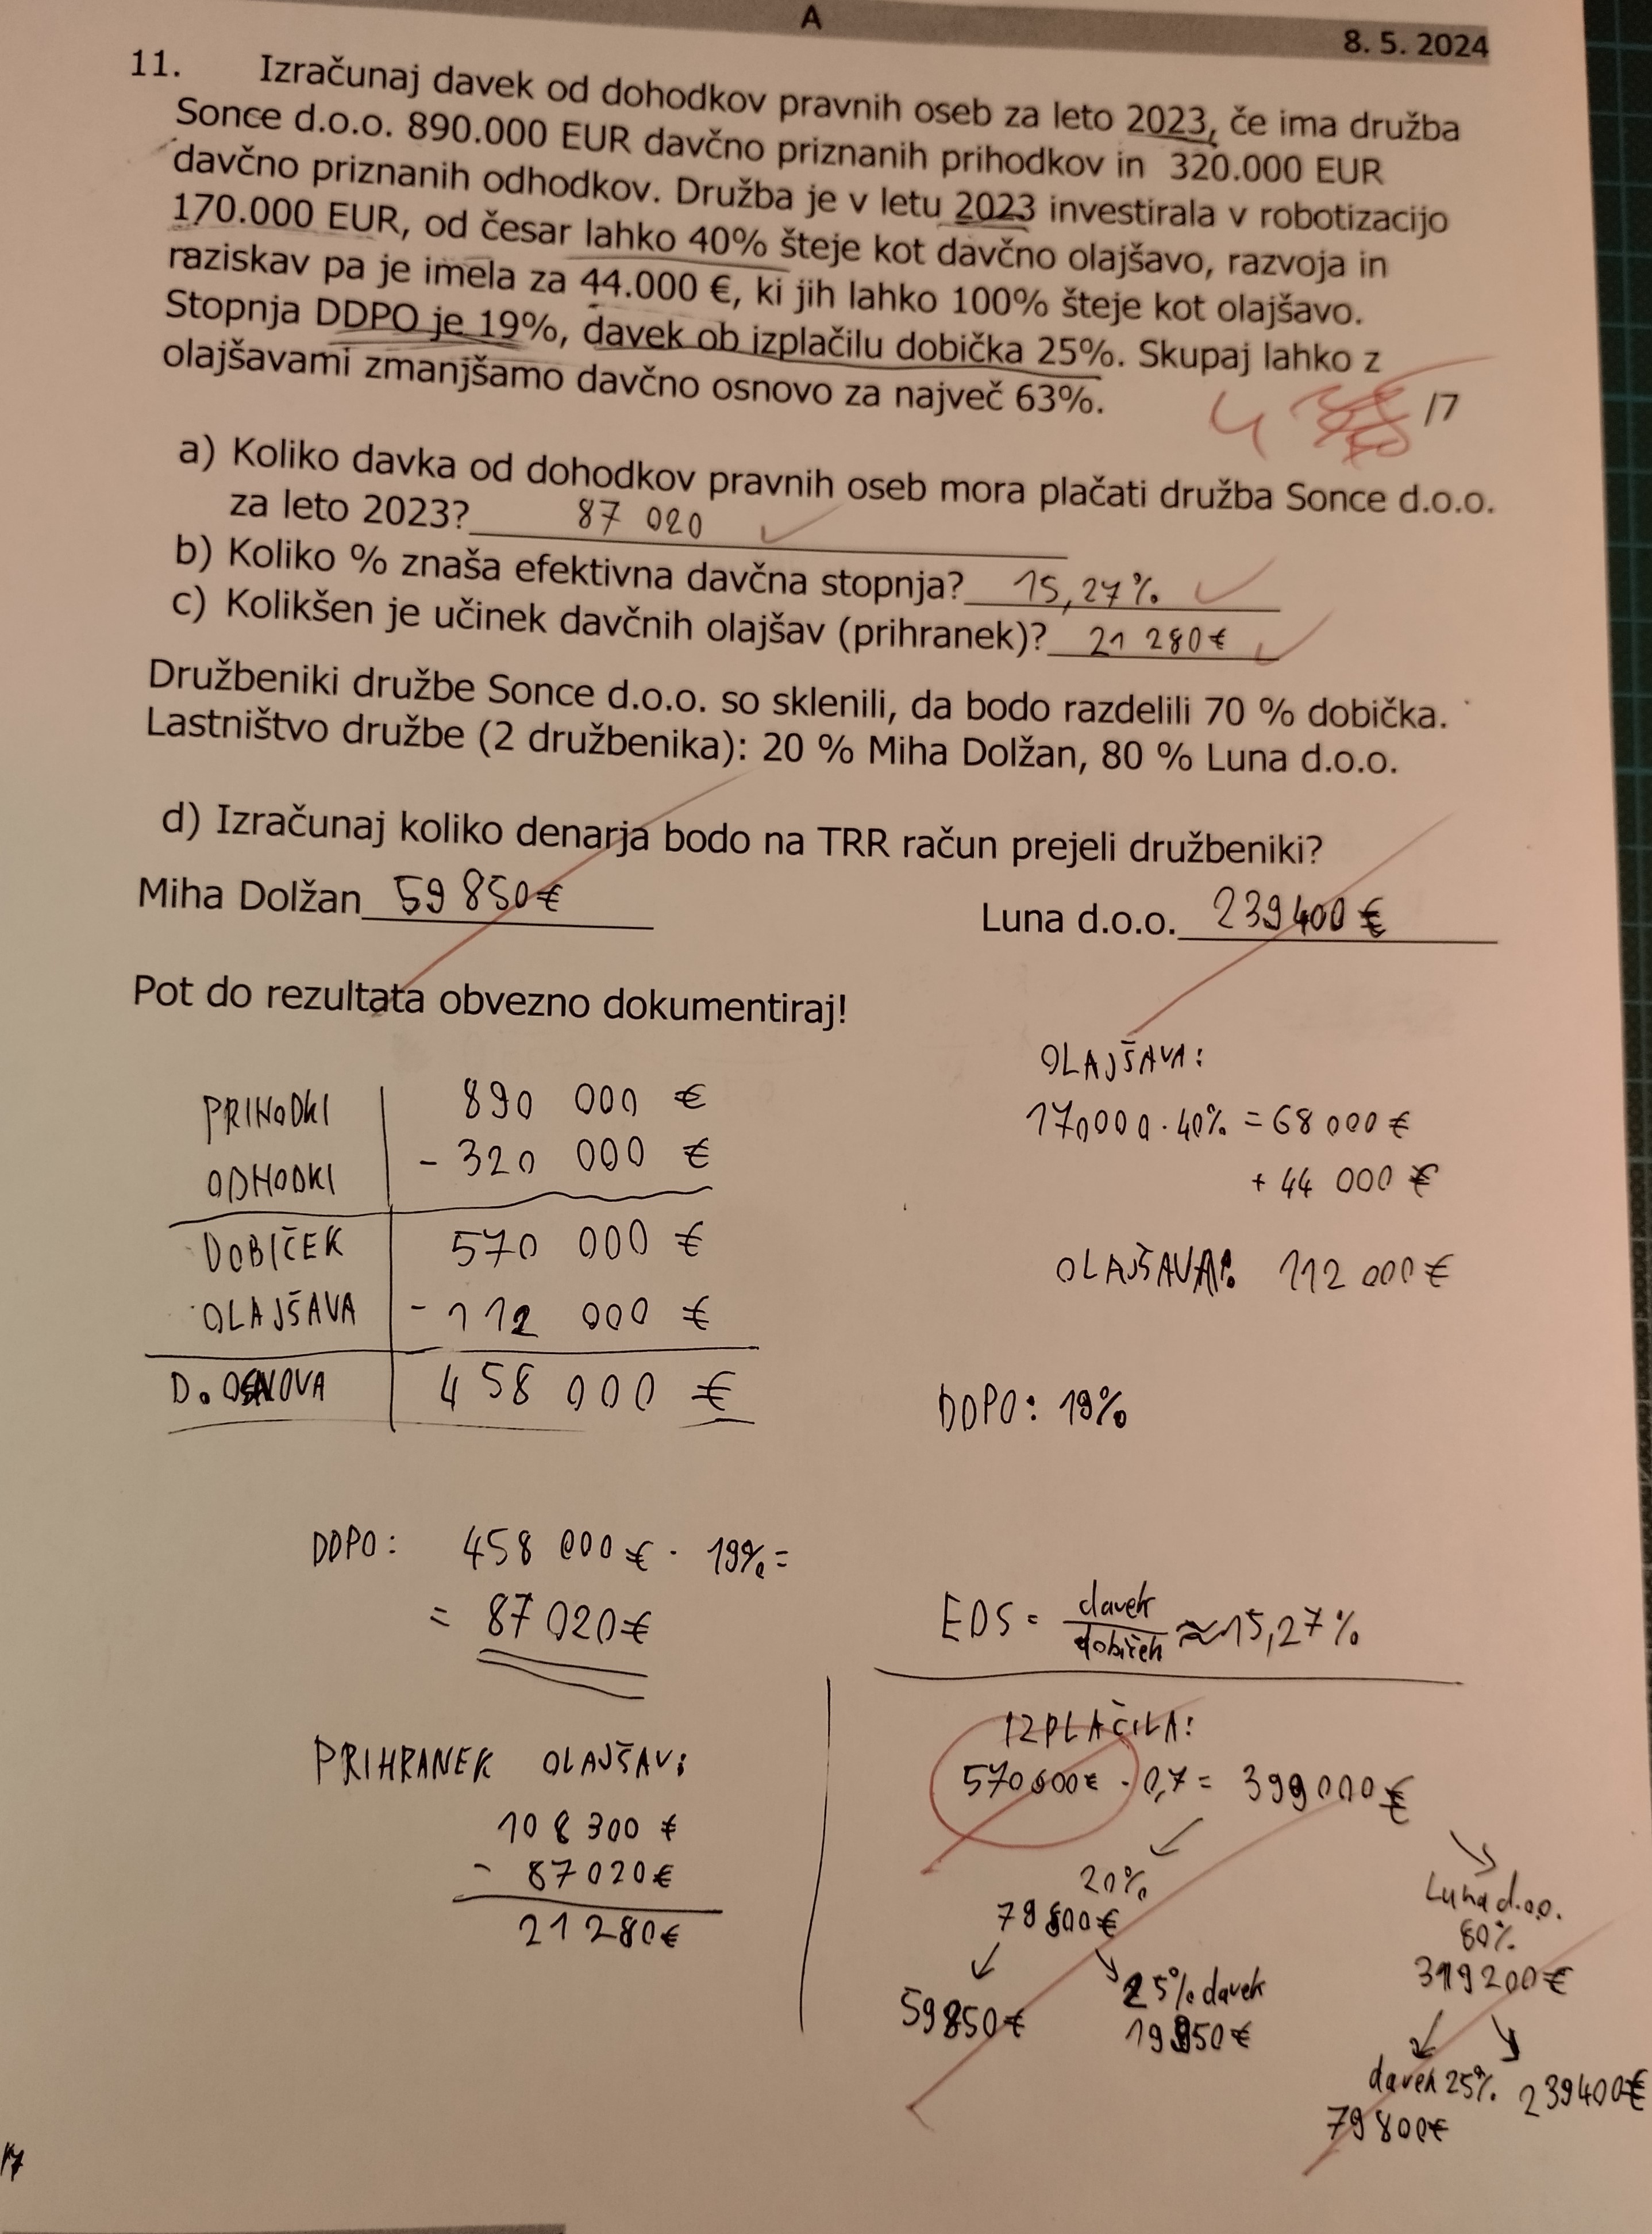 A
8. 5. 2024
11. Izračunaj davek od dohodkov pravnih oseb za leto 2023, če ima družba
Sonce d.o.o. 890.000 EUR davčno priznanih prihodkov in 320.000 EUR
davčno priznanih odhodkov. Družba je v letu 2023 investirala v robotizacijo
170.000 EUR, od česar lahko 40% šteje kot davčno olajšavo, razvoja in
raziskav pa je imela za 44.000 €, ki jih lahko 100% šteje kot olajšavo.
Stopnja DDPO je 19%, davek ob izplačilu dobička 25%. Skupaj lahko z
olajšavami zmanjšamo davčno osnovo za največ 63%.
4 /7
a) Koliko davka od dohodkov pravnih oseb mora plačati družba Sonce d.o.o.
za leto 2023? 87 020
b) Koliko % znaša efektivna davčna stopnja? 15,27%
c) Kolikšen je učinek davčnih olajšav (prihranek)? 21 280€
Družbeniki družbe Sonce d.o.o. so sklenili, da bodo razdelili 70 % dobička.
Lastništvo družbe (2 družbenika): 20 % Miha Dolžan, 80 % Luna d.o.o.
d) Izračunaj koliko denarja bodo na TRR račun prejeli družbeniki?
Miha Dolžan 59 850€ Luna d.o.o. 239400 €
Pot do rezultata obvezno dokumentiraj!
PRIHODKI 890 000 €
ODHODKI - 320 000 €
DOBIČEK 570 000 €
OLAJŠAVA - 112 000 €
D. OSNOVA 458 000 €
OLAJŠAVA:
170000 · 40% = 68 000 €
+ 44 000 €
OLAJŠAVA: 112 000 €
DDPO: 19%
DDPO: 458 000 € · 19% =
= 87 020€
EDS = davek
dobiček ≈ 15,27%
PRIHRANEK OLAJŠAV:
108 300 €
- 87 020€
21 280€
IZPLAČILA:
570 000€ · 0,7 = 399 000€
20%
79 800€
59 850€
25% davek
19 950€
Luna d.o.o.
80%
319 200€
davek 25%
79 800€
239400€